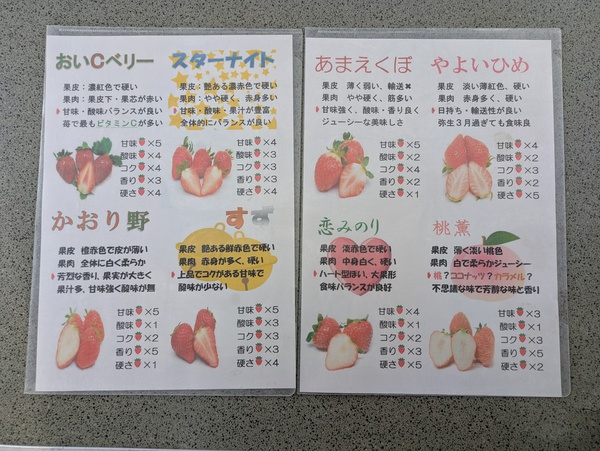 おいCベリー
果皮：濃紅色で硬い
果肉：果皮下・果芯が赤い
甘味・酸味バランスが良い
苺で最もビタミンCが多い
甘味×5
酸味×4
コク×4
香り×3
硬さ×4
スターナイト
果皮：艶ある濃赤色で硬い
果肉：やや硬く、赤身多い
甘味・酸味・果汁が豊富
全体的にバランスが良い
甘味×4
酸味×3
コク×3
香り×3
硬さ×4
かおり野
果皮 橙赤色で皮が薄い
果肉 全体に白く柔らか
芳烈な香り、果実が大きく
果汁多、甘味強く酸味が無
甘味×5
酸味×1
コク×2
香り×5
硬さ×1
すず
果皮 艶ある鮮赤色で硬い
果肉 赤身が多く、硬い
上品でコクがある甘味で
酸味が少ない
甘味×5
酸味×3
コク×3
香り×3
硬さ×4
あまえくぼ
果皮 薄く弱い、輸送✖
果肉 やや硬く、筋多い
甘味強く、酸味・香り良く
ジューシーな美味しさ
甘味×5
酸味×2
コク×4
香り×3
硬さ×2
やよいひめ
果皮 淡い薄紅色、硬い
果肉 赤身多く、硬い
日持ち・輸送性が良い
弥生３月過ぎても食味良
甘味×4
酸味×2
コク×3
香り×2
硬さ×5
恋みのり
果皮 淡赤色で硬い
果肉 中身白く、硬い
ハート型ぽい、大果形
食味バランスが良好
甘味×4
酸味×1
コク×2
香り×3
硬さ×5
桃薫
果皮 薄く淡い桃色
果肉 白で柔らかジューシー
桃？ココナッツ？カラメル？
不思議な味で芳醇な味と香り
甘味×3
酸味×1
コク×3
香り×5
硬さ×2